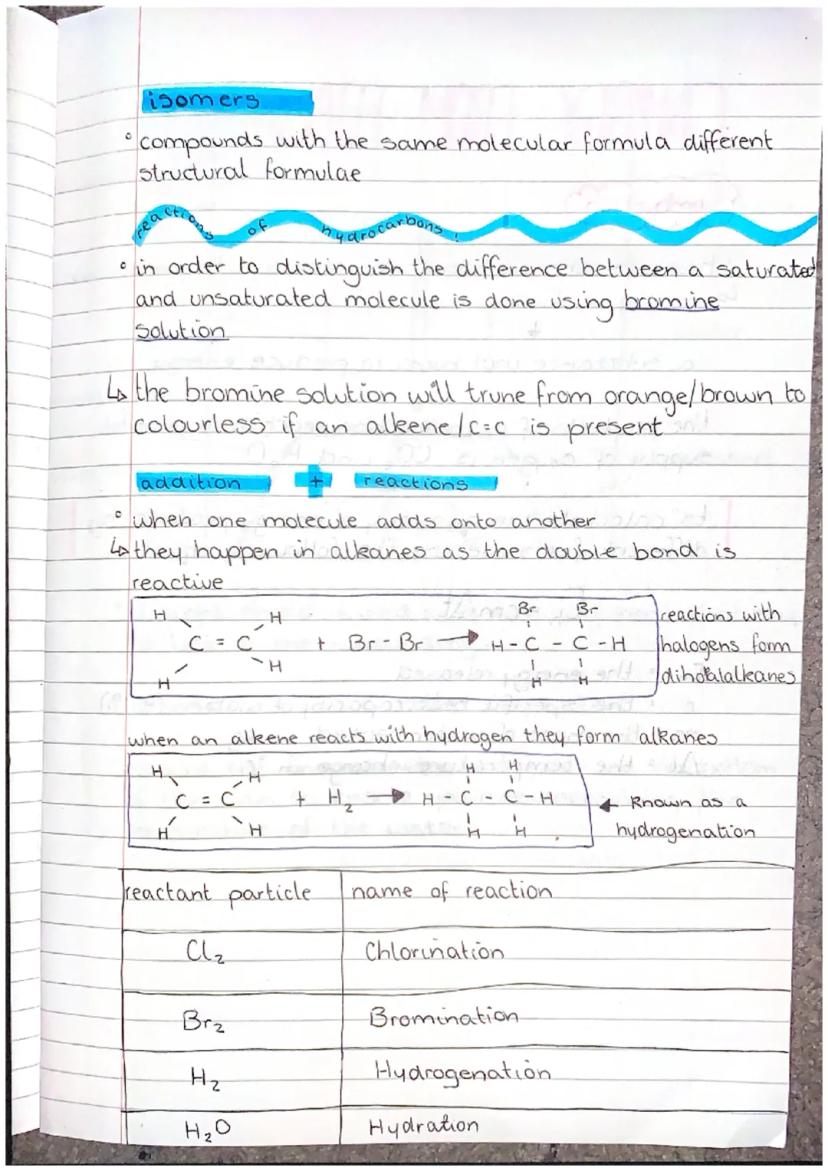 isomers
° compounds with the same molecular formula different
structural formulae
reactions of hydrocarbons!
° in order to distinguish the difference between a saturated
and unsaturated molecule is done using bromine
solution
↳ the bromine solution will trune from orange/brown to
colourless if an alkene/c=c is present
addition + reactions
° when one molecule adds onto another
↳ they happen in alkanes as the double bond is
reactive
H H Br Br
C = C + Br - Br → H - C - C - H
H H H H
reactions with
halogens form
when an alkene reacts with hydrogen they form alkanes
H H H H
C = C + H₂ → H - C - C - H
H H H H
← Known as a
hydrogenation
reactant particle name of reaction
Cl₂ Chlorination
Br₂ Bromination
H₂ Hydrogenation
H₂O Hydration